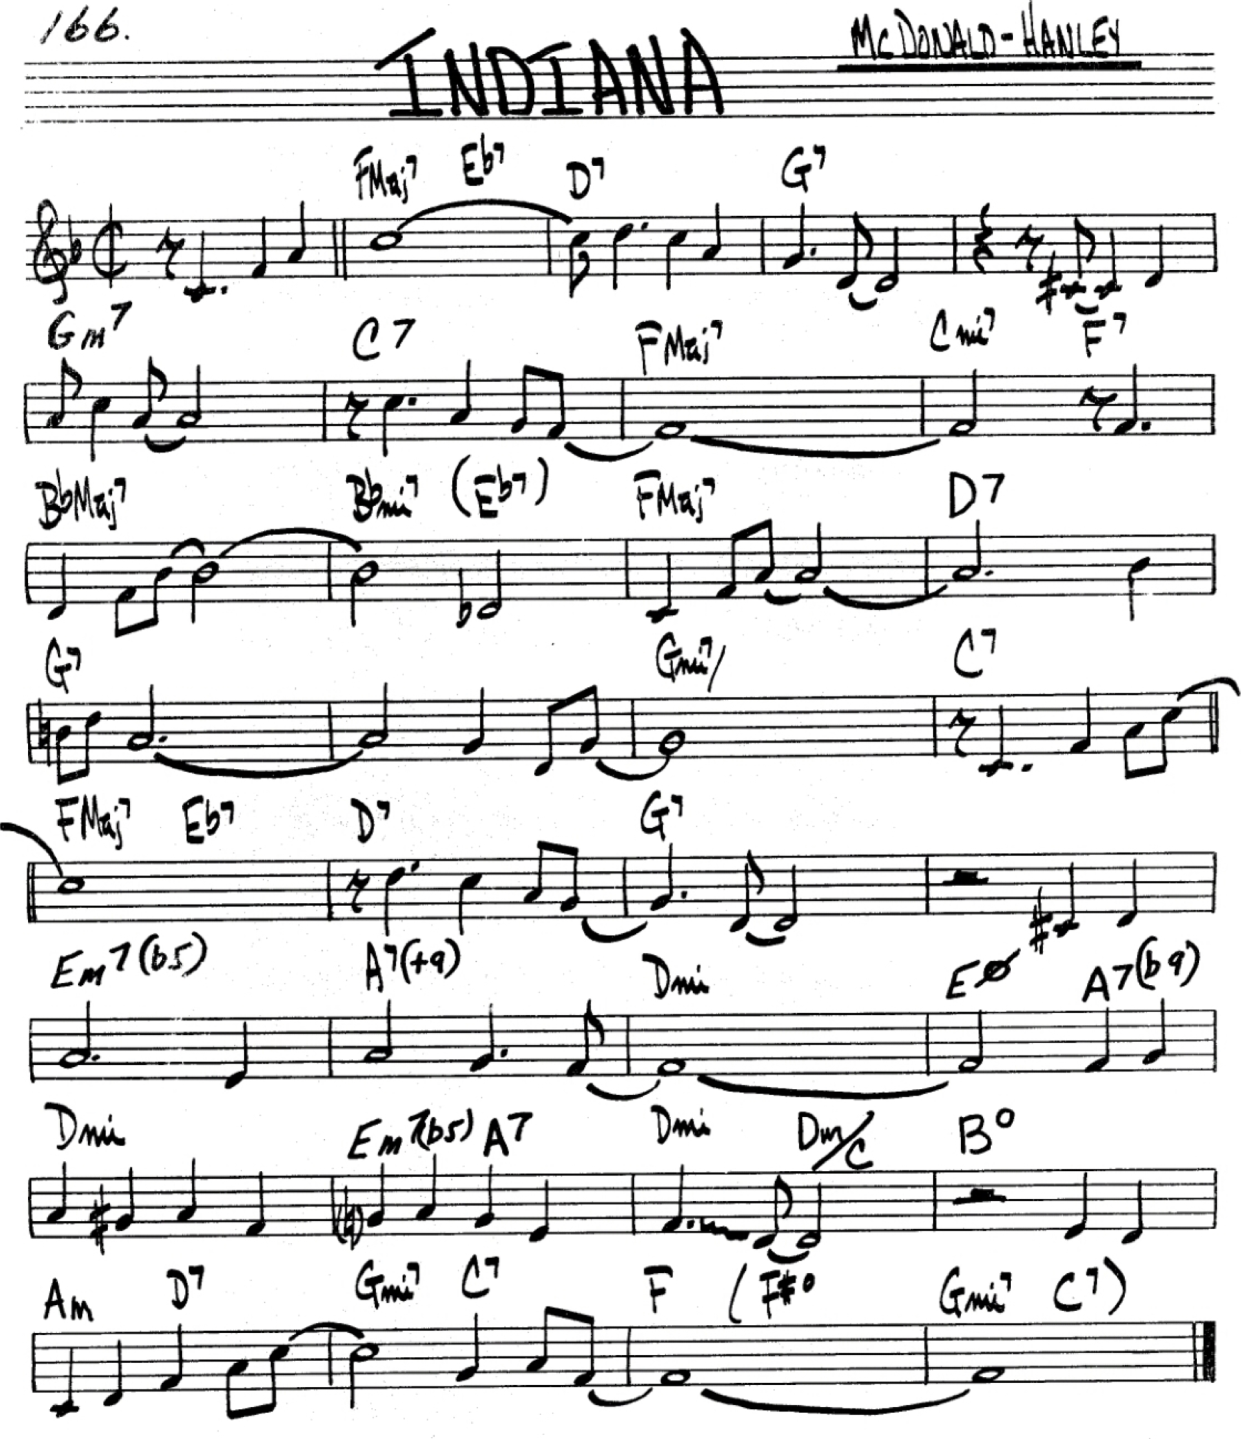 166.
INDIANA
McDONALD-HANLEY
FMaj7 Eb7 D7 G7
Gm7 C7 FMaj7 Cmi7 F7
BbMaj7 Bbmi7 (Eb7) FMaj7 D7
G7 Gmi7/ C7
FMaj7 Eb7 D7 G7
Em7(b5) A7(+9) Dmi Eø A7(b9)
Dmi Em7(b5) A7 Dmi Dm/C B°
Am D7 Gmi7 C7 F (F#° Gmi7 C7)